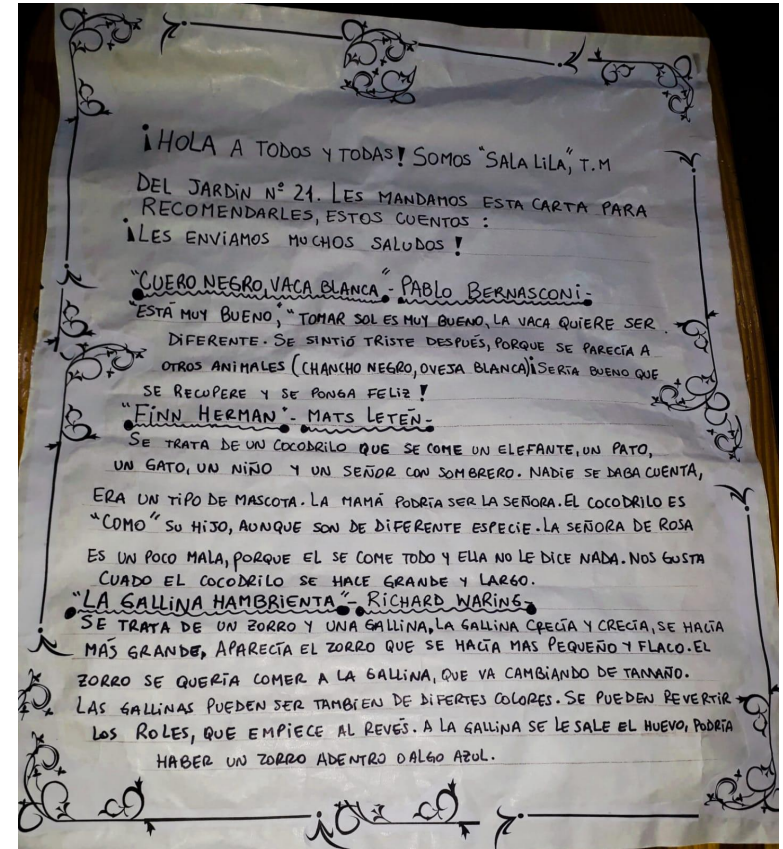 ¡HOLA A TODOS Y TODAS! SOMOS "SALA LILA", T.M
DEL JARDÍN Nº 21. LES MANDAMOS ESTA CARTA PARA
RECOMENDARLES, ESTOS CUENTOS :
¡LES ENVIAMOS MUCHOS SALUDOS !
"CUERO NEGRO, VACA BLANCA"- PABLO BERNASCONI-
"ESTÁ MUY BUENO", "TOMAR SOL ES MUY BUENO, LA VACA QUIERE SER
DIFERENTE. SE SINTIÓ TRISTE DESPUÉS, PORQUE SE PARECÍA A
OTROS ANIMALES (CHANCHO NEGRO, OVEJA BLANCA) ¡SERÍA BUENO QUE
SE RECUPERE Y SE PONGA FELIZ !
"FINN HERMAN"- MATS LETÉN-
SE TRATA DE UN COCODRILO QUE SE COME UN ELEFANTE, UN PATO,
UN GATO, UN NIÑO Y UN SEÑOR CON SOMBRERO. NADIE SE DABA CUENTA,
ERA UN TIPO DE MASCOTA. LA MAMÁ PODRÍA SER LA SEÑORA. EL COCODRILO ES
"COMO" SU HIJO, AUNQUE SON DE DIFERENTE ESPECIE. LA SEÑORA DE ROSA
ES UN POCO MALA, PORQUE EL SE COME TODO Y ELLA NO LE DICE NADA. NOS GUSTA
CUADO EL COCODRILO SE HACE GRANDE Y LARGO.
"LA GALLINA HAMBRIENTA"- RICHARD WARING-
SE TRATA DE UN ZORRO Y UNA GALLINA, LA GALLINA CRECÍA Y CRECÍA, SE HACÍA
MÁS GRANDE, APARECÍA EL ZORRO QUE SE HACÍA MAS PEQUEÑO Y FLACO. EL
ZORRO SE QUERÍA COMER A LA GALLINA, QUE VA CAMBIANDO DE TAMAÑO.
LAS GALLINAS PUEDEN SER TAMBIEN DE DIFERTES COLORES. SE PUEDEN REVERTIR
LOS ROLES, QUE EMPIECE AL REVÉS. A LA GALLINA SE LE SALE EL HUEVO, PODRÍA
HABER UN ZORRO ADENTRO O ALGO AZUL.